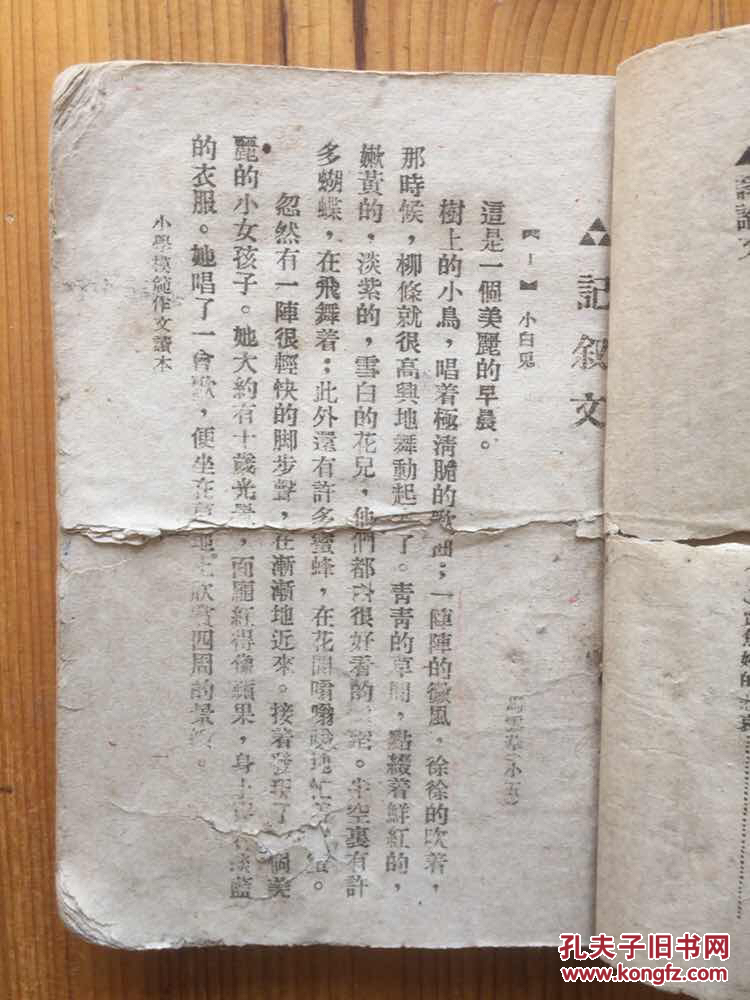 記叙文
【1】 小白兎
這是一個美麗的早晨。
樹上的小鳥,唱着極淸脆的歌曲;一陣陣的微風,徐徐的吹着,
那時候,柳條就很高興地舞動起 了。青青的草間,點綴着鮮紅的,
嫩黃的,淡紫的,雪白的花兒,他們都 很好看的 。半空裏有許
多蝴蝶,在飛舞着;此外還有許多蜜蜂,在花間嗡嗡 地忙着 。
忽然有一陣很輕快的脚步聲,在漸漸地近來。接着發現了 個美
麗的小女孩子。她大約有十歲光景,面龐紅得像蘋果,身上 淡藍
的衣服。她唱了一會歌,便坐在草地上欣賞四周的景 。
小學模範作文讀本
一
孔夫子旧书网
www.kongfz.com